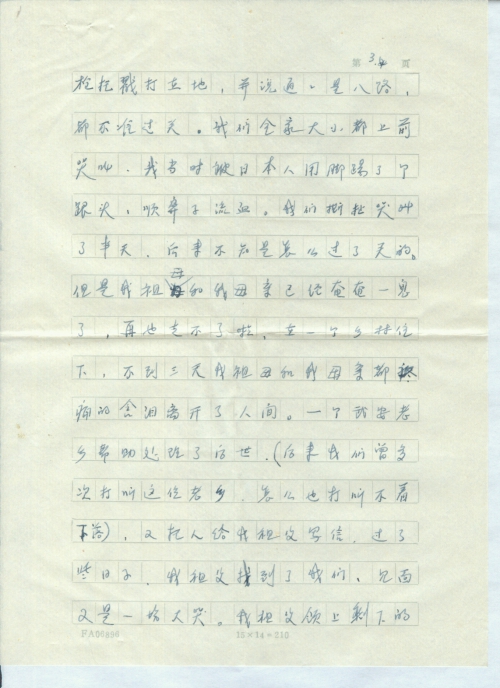 第 34 頁
枪托戳打在地，并说道：是八路，
都不准过关。我们全家大小都上前
哭叫，我当时被日本人用脚踢了个
跟头，顺鼻子流血。我们撕拉哭叫
了半天，后来不知是怎么过了关的。
但是我祖母和我母亲已经奄奄一息
了，再也走不了啦，在一个乡村住
下，不到三天我祖母和我母亲都
痛的含泪离开了人间。一个好老
乡帮助处理了后世，（后来我们曾多
次打听这位老乡，怎么也打听不着
下落），又托人给我祖父写信，过了
些日子，我祖父找到了我们，见面
又是一场大哭。我祖父领上剩下的
15×14=210